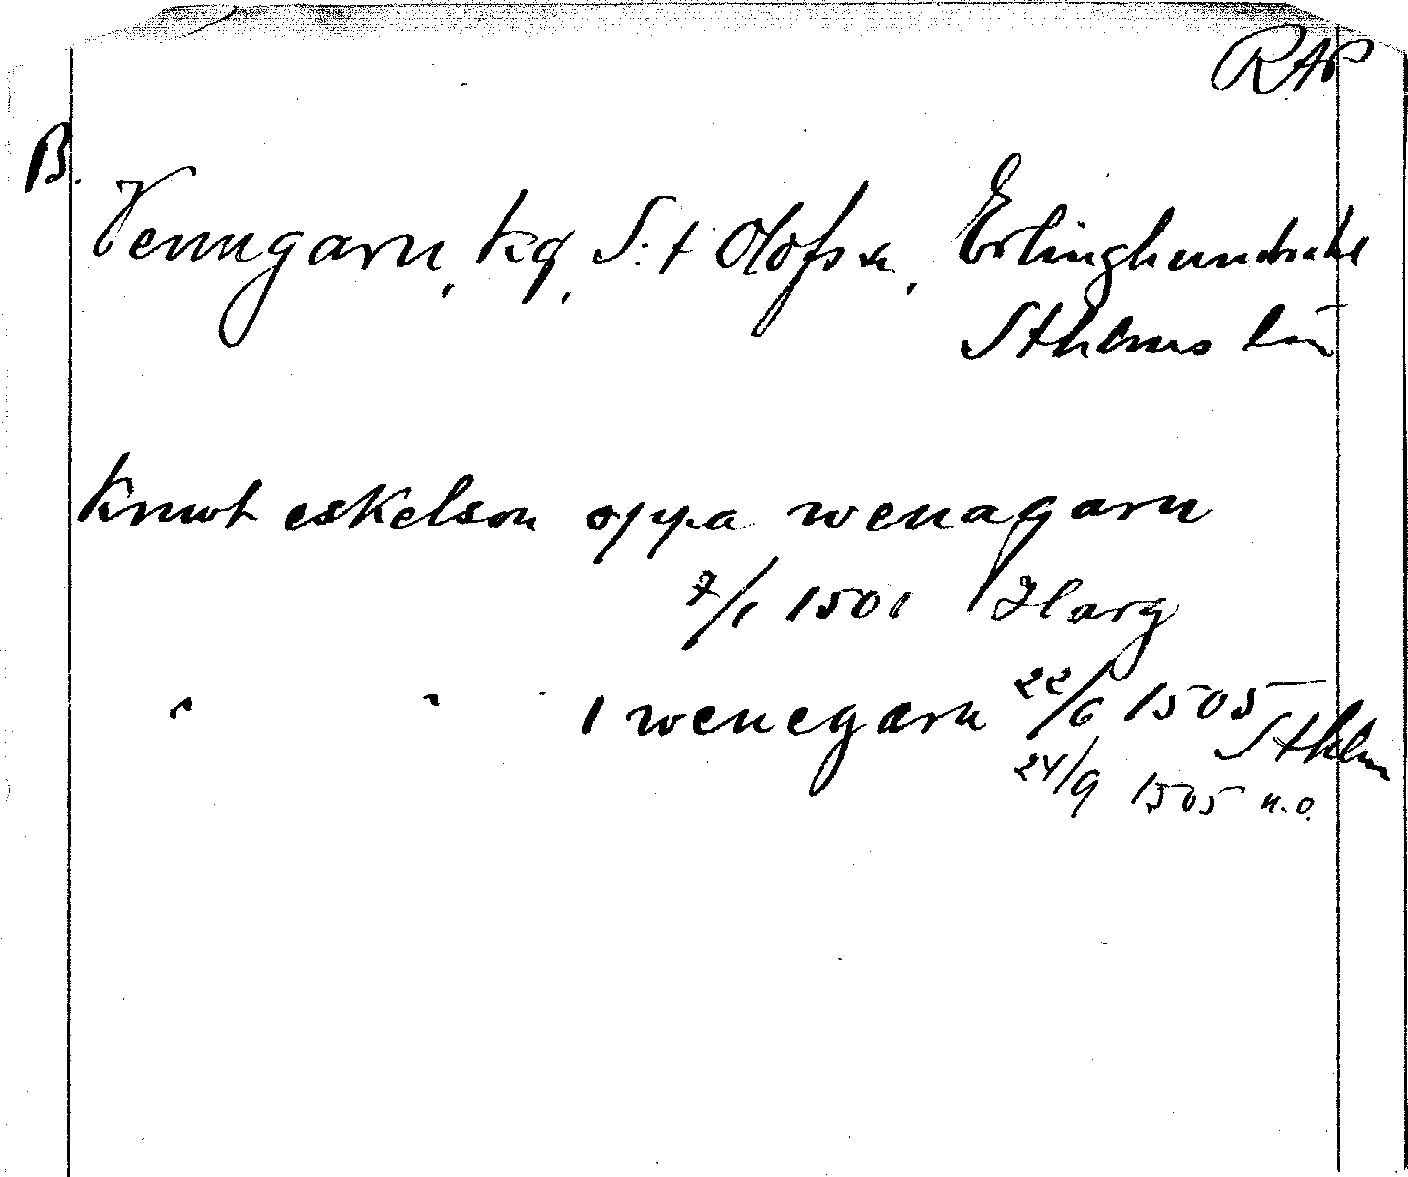 RAP
B.
Venngarn, kg, S:t Olofs sn, Erlinghundra hd
Sthlms län
Knwt eskelson oppa wenagarn
7/1 1501 Harg
" " i wenegarn 22/6 1505
Sthlm
24/9 1505 u.o.